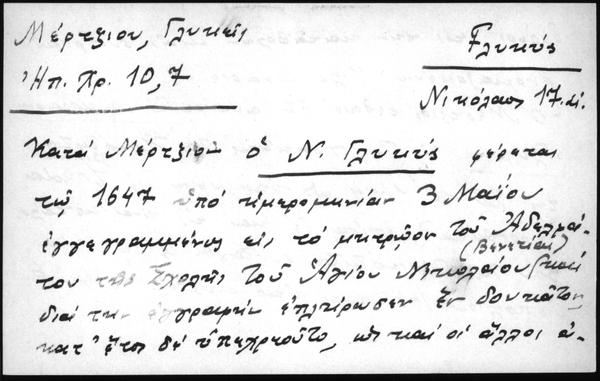 Μέρτζιου, Γλυκεῖς
Ἠπ. Χρ. 10,7
Γλυκύς
Νικόλαος 17 αἰ.
Κατά Μέρτζιον ὁ Ν. Γλυκύς φέρεται
τῷ 1647 ὑπό ἡμερομηνίαν 3 Μαΐου
ἐγγεγραμμένος εἰς τό μητρῷον τοῦ Ἀδελφά-
(Βενετίας)
του τῆς Σχολῆς τοῦ Ἁγίου Νικολάου καί
διά την ἐγγραφήν ἐπλήρωσεν ἕν δουκᾶτον,
κατ' ἔτος δέ ὑπεχρεοῦτο, ὡς καί οἱ ἄλλοι ἀ-